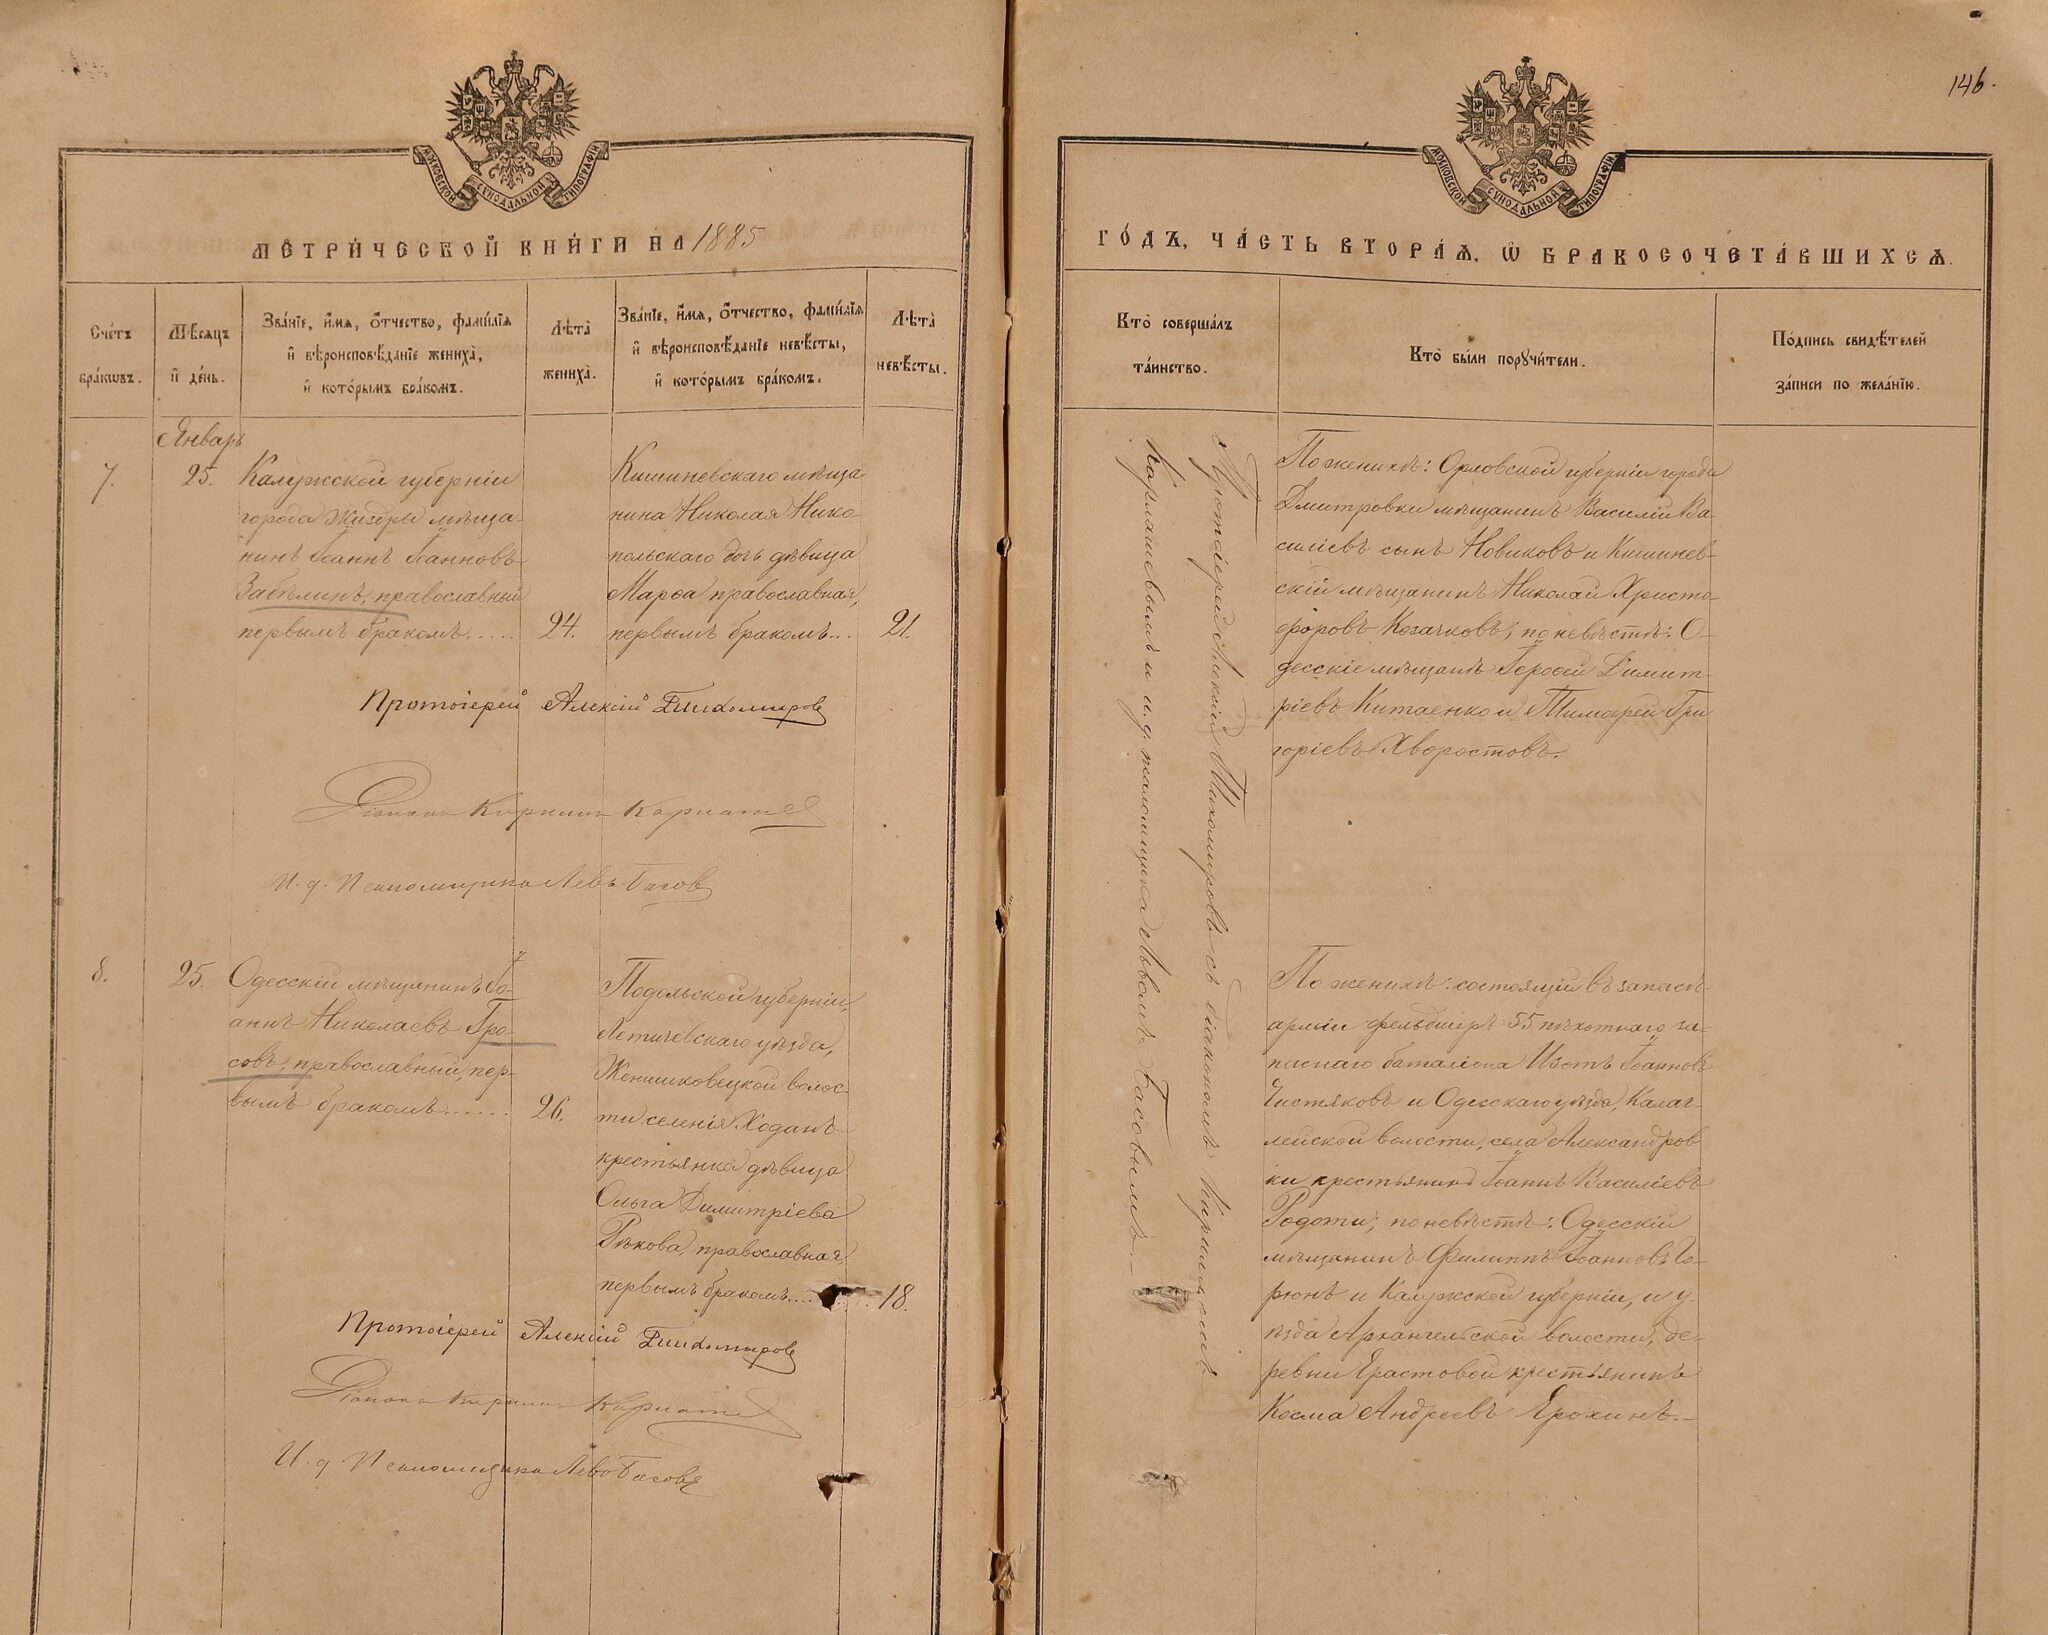 МОСКОВСКОЙ СУНОДАЛЬНОЙ ТИПОГРАФІИ
МЕТРИ́ЧЕСКОЙ КНИ́ГИ НА 1885
Сче́тъ бра́кѡвъ.
Мѣ́сяцъ и҆ де́нь.
Зва́нїе, и҆́мѧ, ѻ҆́тчество, фами́лїѧ
и҆ вѣроисповѣ́данїе жениха̀,
и҆ кото́рымъ бра́комъ.
Лѣ́та̀
жениха̀.
Зва́нїе, и҆́мѧ, ѻ҆́тчество, фами́лїѧ
и҆ вѣроисповѣ́данїе невѣ́сты,
и҆ кото́рымъ бра́комъ.
Лѣ́та̀
невѣ́сты.
Январь
7.
25.
Калужской губерніи
города Жиздры мѣща-
нинъ Іоаннъ Іоанновъ
Забѣлинъ, православный
первымъ бракомъ.....
24.
Кишиневскаго мѣща-
нина Николая Нико-
польскаго дочь дѣвица
Марѳа православная,
первымъ бракомъ...
21.
Протоіерей Алексій Тихомировъ
Діаконъ Кириллъ Карлаше
И. д. Псаломщика Левъ Басовъ
8.
25.
Одесскій мѣщанинъ Іо-
аннъ Николаевъ Гро-
совъ, православный, пер-
вымъ бракомъ......
26.
Подольской губерніи,
Летичевскаго уѣзда,
Женишковецкой волос-
ти селенія Ходакъ
крестьянка дѣвица
Ольга Димитріева
Рѣкова, православная
первымъ бракомъ....
18.
Протоіерей Алексій Тихомировъ
Діаконъ Кириллъ Карлаше
И. д. Псаломщика Левъ Басовъ
146.
МОСКОВСКОЙ СУНОДАЛЬНОЙ ТИПОГРАФІИ
ГО́ДЪ, ЧА́СТЬ ВТОРА́Ѧ, Ѡ҆ БРАКОСОЧЕТА́ВШИХСѦ.
Кто̀ соверша́лъ
та́инство.
Кто̀ бы́ли порꙋчи́тели.
По́дпись свидѣ́телей
за́писи по жела́нїю.
Протоіерей Алексій Тихомировъ съ діакономъ Кирилломъ
Карлашевымъ и и. д. псаломщика Львомъ Басовымъ.
По женихѣ: Орловской губерніи города
Дмитровки мѣщанинъ Василій Ва-
силіевъ сынъ Новиковъ и Кишинев-
скій мѣщанинъ Николай Христо-
форовъ Козачковъ; по невѣстѣ: О-
десскіе мѣщане Іероѳей Димит-
ріевъ Китаенко и Тимоѳей Гри
горіевъ Хворостовъ.
По женихѣ: состоящій въ запасѣ
арміи фельдшеръ 55 пѣхотнаго за-
паснаго баталіона Изотъ Іоанновъ
Чистяковъ и Одесскаго уѣзда, Калаг-
лейской волости, села Александров
ки крестьянинъ Іоаннъ Василіевъ
Родоти; по невѣстѣ: Одесскій
мѣщанинъ Филиппъ Іоанновъ Го-
рюнъ и Калужской губерніи, и у-
ѣзда Архангельской волости, де-
ревни Ерастовой крестьянинъ
Косма Андреевъ Ерохинъ.